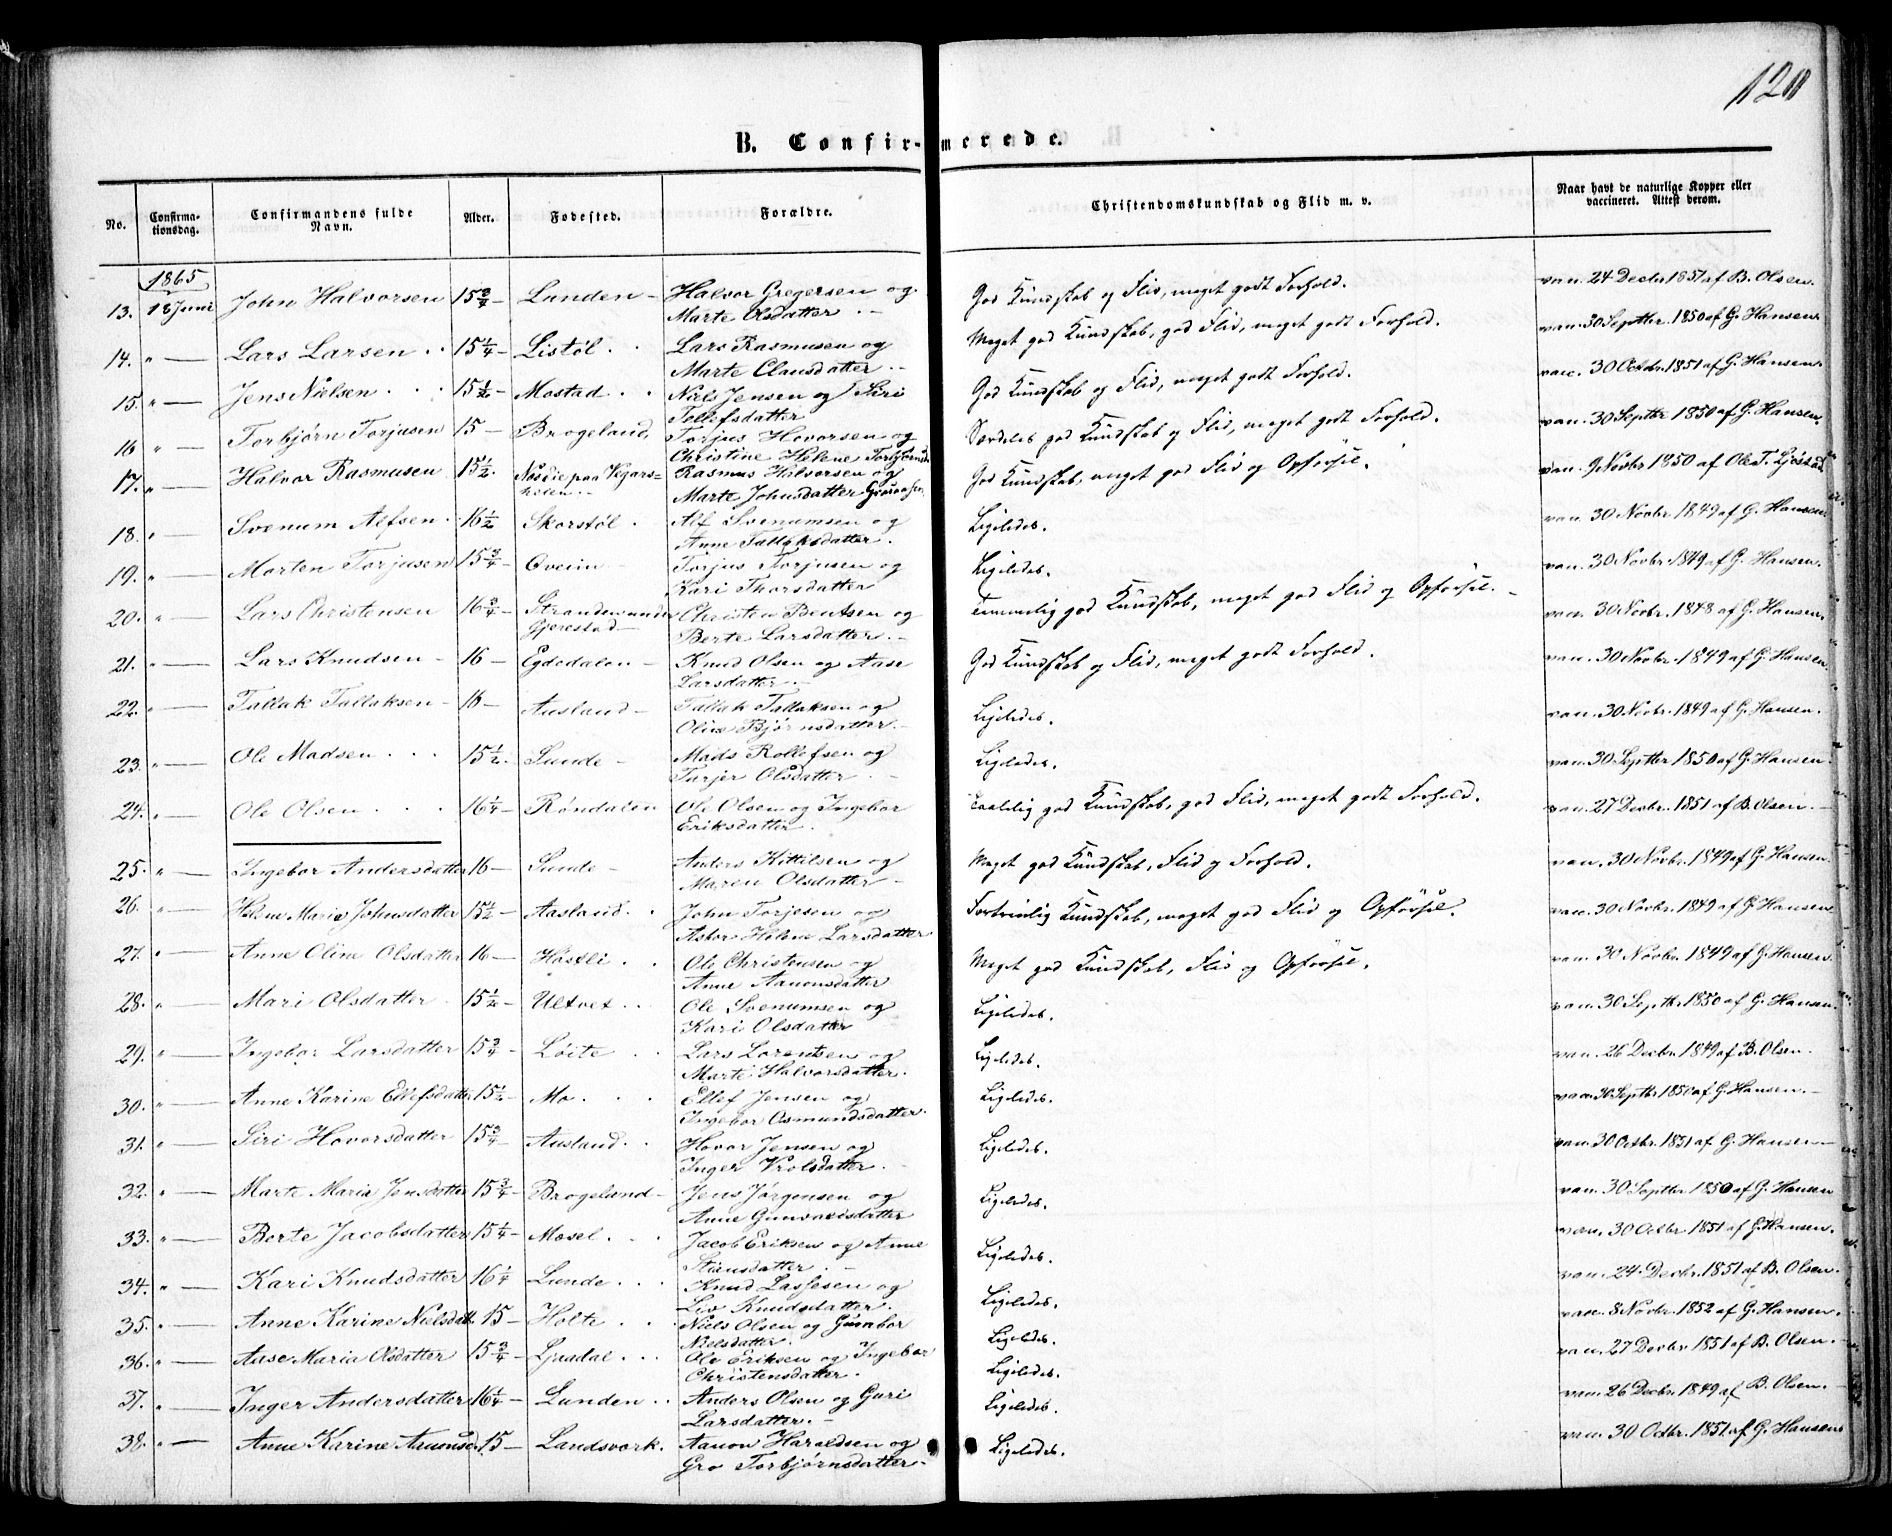 120
B. Confirmerede.
No. Confirmationsdag. Confirmandens fulde Navn. Alder. Fødested. Forældre. Christendomskundskab og Flid m. v. Naar havt de naturlige Kopper eller vaccineret. Attest derom.
1865
13. 18 Juni John Halvorsen 15 3/4 - Lunden - Halvor Gregersen og Marte Olsdatter. - God Kundskab og Flid, meget godt Forhold. vac. 24 Decbr 1851 af B. Olsen.
14. " — Lars Larsen 15 1/4 - Listøl Lars Rasmusen og Marte Clausdatter. - Meget god Kundskab, god Flid, meget godt Forhold. vac. 30 Septbr. 1850 af G. Hansen.
15. " — Jens Nielsen 15 1/2 - Mostad Niels Jensen og Siri Tollefsdatter God Kundskab og Flid, meget godt Forhold. vac. 30 Octbr. 1851 af G. Hansen.
16 " — Torbjørn Torjusen 15 - Brogeland Torjus Hovorsen og Christine Helene Særdeles god Kundskab og Flid, meget godt Forhold. vac. 30 Septbr 1850 af G. Hansen.
17. " — Halvor Rasmusen 15 1/2. paa Vegarsheien Rasmus Halvorsen og Marte Johnsdatter God Kundskab, meget god Flid og Opførsel. vac. 9 Novbr 1850 af Ole T.
18. " — Svenum Alfsen 16 1/2 - Skorstøl Alf Svenumsen og Anne Tallaksdatter. Ligeledes. vac. 30 Novbr. 1849 af G. Hansen
19. " — Morten Torjusen 15 3/4 - Oveim - Torjus Torjusen og Kari Thorsdatter Ligeledes. vac. 30 Novbr. 1849 af G. Hansen.
20. " — Lars Christensen 16 3/4 - Stranden under Gjerestad - Christen Bentsen og Berte Larsdatter. - Temmelig god Kundskab, meget god Flid og Opførsel. vac. 30 Novbr. 1848 af G. Hansen.
21. " — Lars Knudsen - 16 - Egdedalen - Knud Olsen og Aase Larsdatter. - God Kundskab og Flid, meget godt Forhold. vac. 30 Novbr. 1849 af G. Hansen.
22. " — Tallak Tallaksen - 16 - Ausland - Tallak Tallaksen og Oline Bjørnsdatter. - Ligeledes. vac. 30 Novbr. 1849 af G. Hansen.
23. " — Ole Madsen 15 1/2. Sunde - Mads Rollefsen og Tarjer Olsdatter - Ligeledes. vac. 30 Septbr 1850 af G. Hansen.
24. " — Ole Olsen 16 1/4 - Røndalen Ole Olsen og Ingebor Eriksdatter. Taalelig god Kundskab, god Flid, meget godt Forhold. vac. 27 Decbr. 1851 af B. Olsen. -
25. " — Ingebor Andersdatter 16 - Sunde - Anders Kittilsen og Maren Olsdatter - Meget god Kundskab, Flid og Forhold. vac. 30 Novbr. 1849 af G. Hansen.
26. " — Helene Marie Johnsdatter 15 1/2 - Aasland. John Torjesen og Asbor Helene Larsdatter Fortrinlig Kundskab, meget god Flid og Opførsel. vac. 30 Novbr. 1849 af G. Hansen.
27. " — Anne Oline Olsdatter 16 - Høstli Ole Christensen og Anne Aanonsdatter Meget god Kundskab, Flid og Opførsel. vac. 30 Novbr. 1849 af G. Hansen.
28. " — Mari Olsdatter 15 1/2 - Ultvet Ole Svenumsen og Kari Olsdatter Ligeledes. vac. 30 Septbr 1850 af G. Hansen.
29. " — Ingebor Larsdatter 15 3/4 - Løite Lars Lorentsen og Marte Halvorsdatter. Ligeledes. vac. 26 Decbr 1849 af B. Olsen.
30. " — Anne Karine Ellefsdatter 15 1/2 - Mo Ellef Jensen og Ingebor Osmundsdatter. Ligeledes. vac. 30 Septbr 1850 af G. Hansen. -
31. " — Siri Hovorsdatter 15 3/4 - Ausland. Hovor Jensen og Inger Vrolsdatter. - Ligeledes. vac. 30 Octbr. 1851 af G. Hansen -
32. " — Marte Maria Jensdatter 15 3/4 - Brogeland - Jens Jørgensen og Anne Ligeledes. vac. 30 Septbr 1850 af G. Hansen
33. " — Berte Jacobsdatter 15 1/4 - Mosel. Jacob Eriksen og Anne Stiansdatter. - Ligeledes. vac. 30 Octbr. 1851 af G. Hansen.
34. " — Kari Knudsdatter 16 1/4 - Lunde Knud Lassesen og Liv Knudsdatter. Ligeledes. vac. 24 Decbr. 1851 af B. Olsen.
35. " — Anne Karine Nielsdatt. 15 - Holte Niels Olsen og Gunbor Nielsdatter. Ligeledes. vac. 8 Novbr. 1852 af G. Hansen.
36. " — Aase Maria Olsdatter 15 3/4 - Ljosdal Ole Eriksen og Ingebor Christensdatter. Ligeledes. vac. 27 Decbr 1851 af B. Olsen. -
37. " — Inger Andersdatter 16 1/4 - Lunden Anders Olsen og Guri Larsdatter. - Ligeledes. vac. 26 Decbr. 1849 af B. Olsen. -
38. " — Anne Karine 15 - Landsverk. Aanon Haraldsen og Gro Torbjørnsdatter. - Ligeledes. vac. 30 Octbr. 1851 af G. Hansen